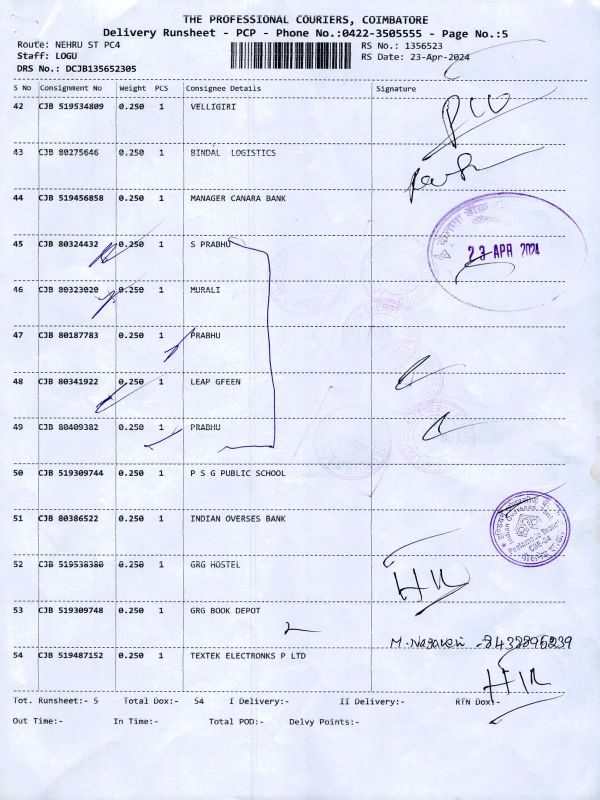 THE PROFESSIONAL COURIERS, COIMBATORE
Delivery Runsheet - PCP - Phone No.:0422-3505555 - Page No.:5
Route: NEHRU ST PC4 RS No.: 1356523
Staff: LOGU RS Date: 23-Apr-2024
DRS No.: DCJB135652305
S No Consignment No Weight PCS Consignee Details Signature
42 CJB 519534809 0.250 1 VELLIGIRI
43 CJB 80275646 0.250 1 BINDAL LOGISTICS
44 CJB 519456858 0.250 1 MANAGER CANARA BANK
23 APR 2024
45 CJB 80324432 0.250 1 S PRABHU
46 CJB 80323020 0.250 1 MURALI
47 CJB 80187783 0.250 1 PRABHU
48 CJB 80341922 0.250 1 LEAP GFEEN
49 CJB 80409382 0.250 1 PRABHU
50 CJB 519309744 0.250 1 P S G PUBLIC SCHOOL
51 CJB 80386522 0.250 1 INDIAN OVERSES BANK
52 CJB 519538380 0.250 1 GRG HOSTEL
53 CJB 519309748 0.250 1 GRG BOOK DEPOT
54 CJB 519487152 0.250 1 TEXTEK ELECTRONKS P LTD
Tot. Runsheet:- 5 Total Dox:- 54 I Delivery:- II Delivery:- RTN Dox:-
Out Time:- In Time:- Total POD:- Delvy Points:-